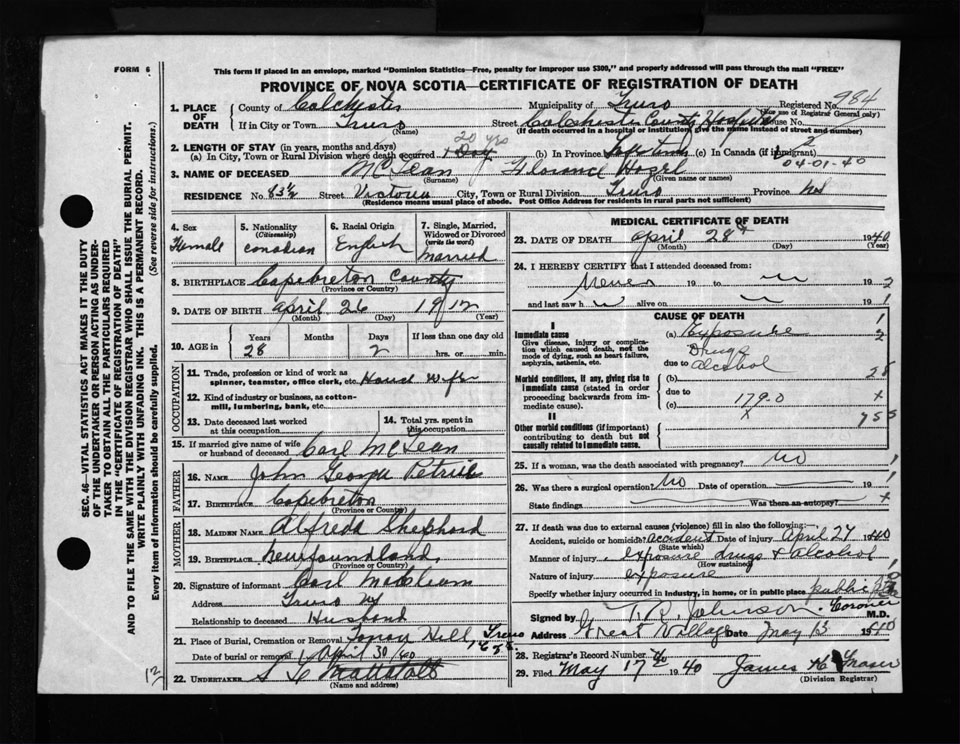 FORM 6
This form if placed in an envelope, marked "Dominion Statistics—Free, penalty for improper use $300," and properly addressed will pass through the mail "FREE"
PROVINCE OF NOVA SCOTIA—CERTIFICATE OF REGISTRATION OF DEATH
SEC. 46—VITAL STATISTICS ACT MAKES IT THE DUTY
OF THE UNDERTAKER OR PERSON ACTING AS UNDER-
TAKER TO OBTAIN ALL THE PARTICULARS REQUIRED
IN THE "CERTIFICATE OF REGISTRATION OF DEATH"
AND TO FILE THE SAME WITH THE DIVISION REGISTRAR WHO SHALL ISSUE THE BURIAL PERMIT.
WRITE PLAINLY WITH UNFADING INK. THIS IS A PERMANENT RECORD.
Every item of information should be carefully supplied. (See reverse side for instructions.)
1. PLACE OF DEATH County of Colchester Municipality of Truro Registered No. 984
(For use of Registrar General only)
If in City or Town Truro Street Colchester County Hospital House No.
(Name) (If death occurred in a hospital or institution, give the name instead of street and number)
2. LENGTH OF STAY (in years, months and days) 20 yrs
(a) In City, Town or Rural Division where death occurred 1 Day (b) In Province (c) In Canada (if immigrant) 2
04-01-40
3. NAME OF DECEASED McLean Florence Hazel
(Surname) (Given name or names)
RESIDENCE No. 83½ Street Victoria City, Town or Rural Division Truro Province
(Residence means usual place of abode. Post Office Address for residents in rural parts not sufficient)
4. Sex Female
5. Nationality (Citizenship) Canadian
6. Racial Origin English
7. Single, Married, Widowed or Divorced (write the word) Married
8. BIRTHPLACE Capebreton County
(Province or Country)
9. DATE OF BIRTH April 26 1912
(Month) (Day) (Year)
10. AGE in Years 28 Months Days 2 If less than one day old hrs. or min.
OCCUPATION
11. Trade, profession or kind of work as spinner, teamster, office clerk, etc. House Wife
12. Kind of industry or business, as cotton-mill, lumbering, bank, etc.
13. Date deceased last worked at this occupation
14. Total yrs. spent in this occupation
15. If married give name of wife or husband of deceased Carl McLean
FATHER
16. NAME John George Petrie
17. BIRTHPLACE Capebreton
(Province or Country)
MOTHER
18. MAIDEN NAME Alfreda Shephard
19. BIRTHPLACE Newfoundland
(Province or Country)
20. Signature of informant Carl
Address Truro NS
Relationship to deceased Husband
21. Place of Burial, Cremation or Removal Hill, Truro
Date of burial or removal April 30/40
22. UNDERTAKER
(Name and address)
12
MEDICAL CERTIFICATE OF DEATH
23. DATE OF DEATH April 28 1940
(Month) (Day) (Year)
24. I HEREBY CERTIFY that I attended deceased from:
Never 19 to 19
and last saw h alive on 19
CAUSE OF DEATH
I
Immediate cause (a) Exposure
Give disease, injury or complication which caused death, not the mode of dying, such as heart failure, asphyxia, asthenia, etc.
Drugs
due to alcohol
Morbid conditions, if any, giving rise to immediate cause (stated in order proceeding backwards from immediate cause). (b)
due to
(c) 179.0
x
II
Other morbid conditions (if important) contributing to death but not causally related to immediate cause.
25. If a woman, was the death associated with pregnancy? No
26. Was there a surgical operation? No Date of operation
State findings Was there an autopsy?
27. If death was due to external causes (violence) fill in also the following:
Accident, suicide or homicide? accident Date of injury April 27 1940
(State which)
Manner of injury exposure drugs + alcohol
(How sustained)
Nature of injury exposure
Specify whether injury occurred in industry, in home, or in public place public
Signed by T. R. Johnson Coroner M.D.
Address Great Village Date May 13 1940
28. Registrar's Record Number 40
29. Filed May 17 1940 James H Fraser
(Division Registrar)